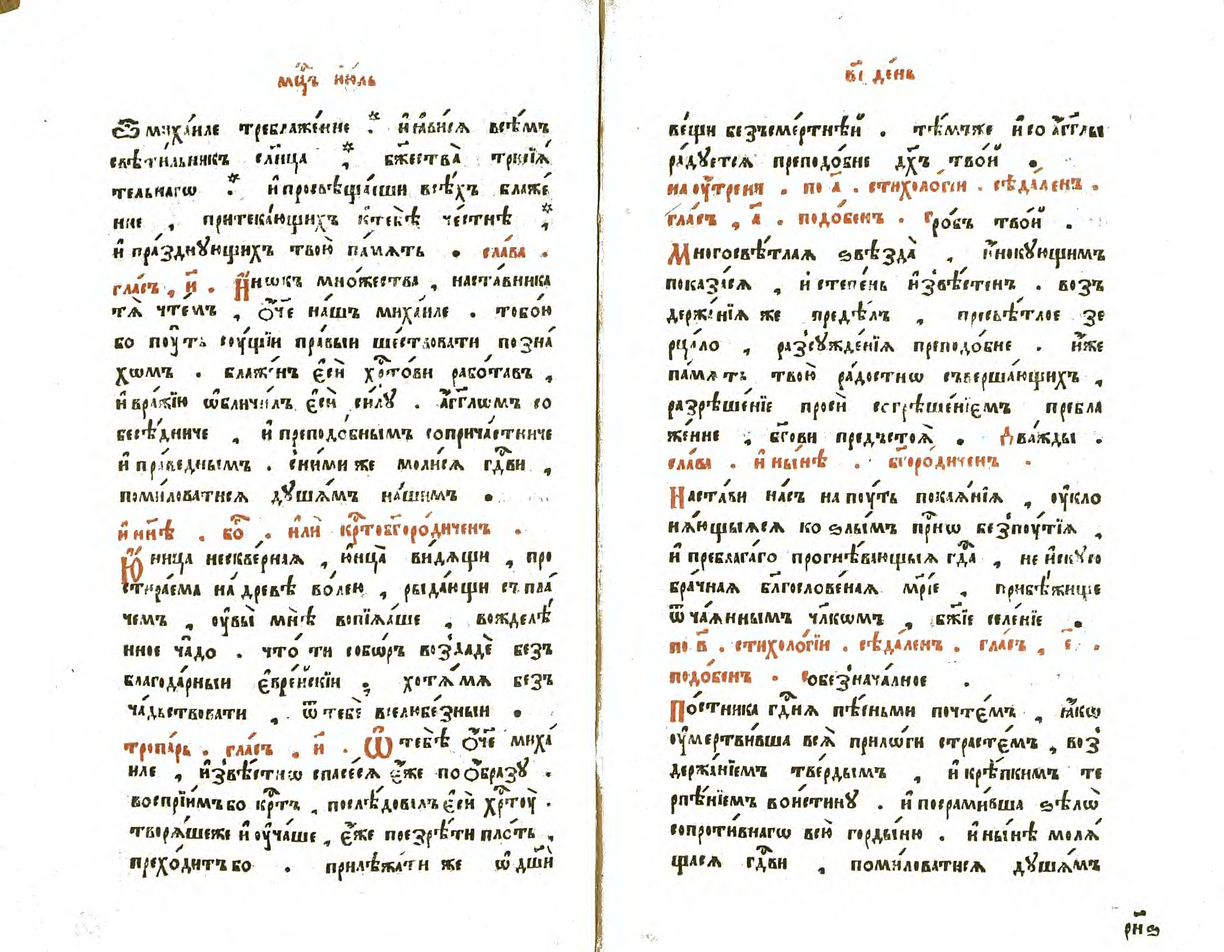 мц҃ъ і҆ю́ль
ѿ михаи́ле требл҃же́нне . и҆ ꙗ҆ви́сѧ всѣ́мъ
свѣти́льникъ сл҃нца , бж҃ества̀ трисїѧ́
тельнагѡ . и҆ просвѣща́еши всѣ́хъ блаже́
нне , притека́ющихъ к̾тебѣ̀ че́стнѣ ,
и҆ пра́зднꙋющихъ твою̀ па́мѧть . сла́ва .
гла́съ , и҃ . И҆́нѡкъ мно́жества , наста́вника
тѧ̀ чте́мъ , ѻ҆́ч҃е на́шъ михаи́ле . тобо́ю
бо поу́ть сꙋ́щїи пра́выи ше́ствовати позна́
хѡмъ . блаже́нъ є҆сѝ хрⷭ҇то́ви рабо́тавъ ,
и҆ вра́жїю ѡ҆бличи́лъ є҆сѝ си́лꙋ . а҆́гг҃лѡмъ со
бесѣ́дниче , и҆ преподо́бнымъ соприча́стниче
и҆ пра́веднымъ . с̾ни́ми же моли́сѧ гдⷭ҇ви ,
поми́ловатисѧ дꙋша́мъ на́шимъ .
и҆ нн҃ѣ . бо҃ . и҆лѝ крⷭ҇тобг҃оро́диченъ .
Ю҆́ница нескве́рнаѧ , ю҆нца̀ ви́дѧщи , про
стира́ема на́древѣ во́лею , рыда́ющи съ пла́
чемъ , оу҆вы̀ мнѣ̀ вопїѧ́ше , вожделѣ́
нное ча́до . что̀ ти собо́ръ воз̾дадѐ безъ
благода́рныи є҆вре́йскїи ; хотѧ́ мѧ безъ
ча́дьствовати , ѿ тебѐ вселюбе́зныи .
тропа́рь . гла́съ , и҃ . Ѡ҆ тебѣ̀ ѻ҆́ч҃е миха́
иле , и҆звѣ́стнѡ спасе́сѧ є҆́же по ѻ҆́бразꙋ .
воспрїи́мъ бо крⷭ҇тъ , послѣ́довалъ є҆сѝ хрⷭ҇тоу̀ .
творѧ́ше же и҆ оу҆ча́ше , є҆́же презрѣ́ти пло́ть ,
прехо́дитъ бо . прилѣжа́ти же ѡ҆ дш҃ѝ
в҃і де́нь
ве́щи безъсме́ртнѣй . тѣ́мъже и҆ со а҆́гг҃лы
ра́дꙋетсѧ преподо́бне дх҃ъ тво́й .
на оу҆́трени . по а҃ . стихоло́гїи . сѣда́ленъ .
гла́съ , а҃ . подо́бенъ . Гро́бъ тво́й .
Многосвѣ́тлаѧ ѕвѣзда̀ , и҆́нокꙋющимъ
показа́сѧ , и҆ степе́нь и҆звѣ́стенъ . воз̾
держа́нїѧ же предѣ́лъ , пресвѣ́тлое зе
рца́ло , раз̾сꙋжде́нїѧ преподо́бне . и҆́же
па́мѧть твою̀ ра́достнѡ съверша́ющихъ ,
разрѣше́нїе просѝ согрѣше́нїємъ пребла
же́нне , бг҃ови предъстоѧ̀ . Два́жды .
сла́ва . и҆ ны́нѣ . бг҃оро́диченъ .
Наста́ви на́съ на поу́ть покаѧ́нїѧ , оу҆кло
нѧ́ющыѧсѧ ко ѕлы́мъ прⷭ҇нѡ безпоу́тїѧ ,
и҆ преблага́го прогнѣ́вающыѧ гдⷭ҇а , не и҆скꙋсо
бра́чнаѧ благослове́наѧ мр҃іе , прибѣ́жище
ѿча́ѧннымъ чл҃кѡмъ , бж҃їе селе́нїе .
по в҃ . стихоло́гїи . сѣда́ленъ . гла́съ , є҃ .
подо́бенъ . собез̾нача́льное .
По́стника гдⷭ҇нѧ пѣ́сньми почте́мъ , ꙗ҆́кѡ
оу҆мертви́вша всѧ̀ прило́ги страсте́мъ , воз̾
держа́нїемъ тве́рдымъ , и҆ крѣ́пкимъ те
рпѣ́нїемъ вои́стинꙋ . и҆ посрами́вша ѕѣлѡ̀
сопроти́внагѡ всю̀ горды́ню . и҆ ны́нѣ молѧ́
щасѧ гдⷭ҇ви , поми́ловатисѧ дꙋша́мъ
рн҃ѕ